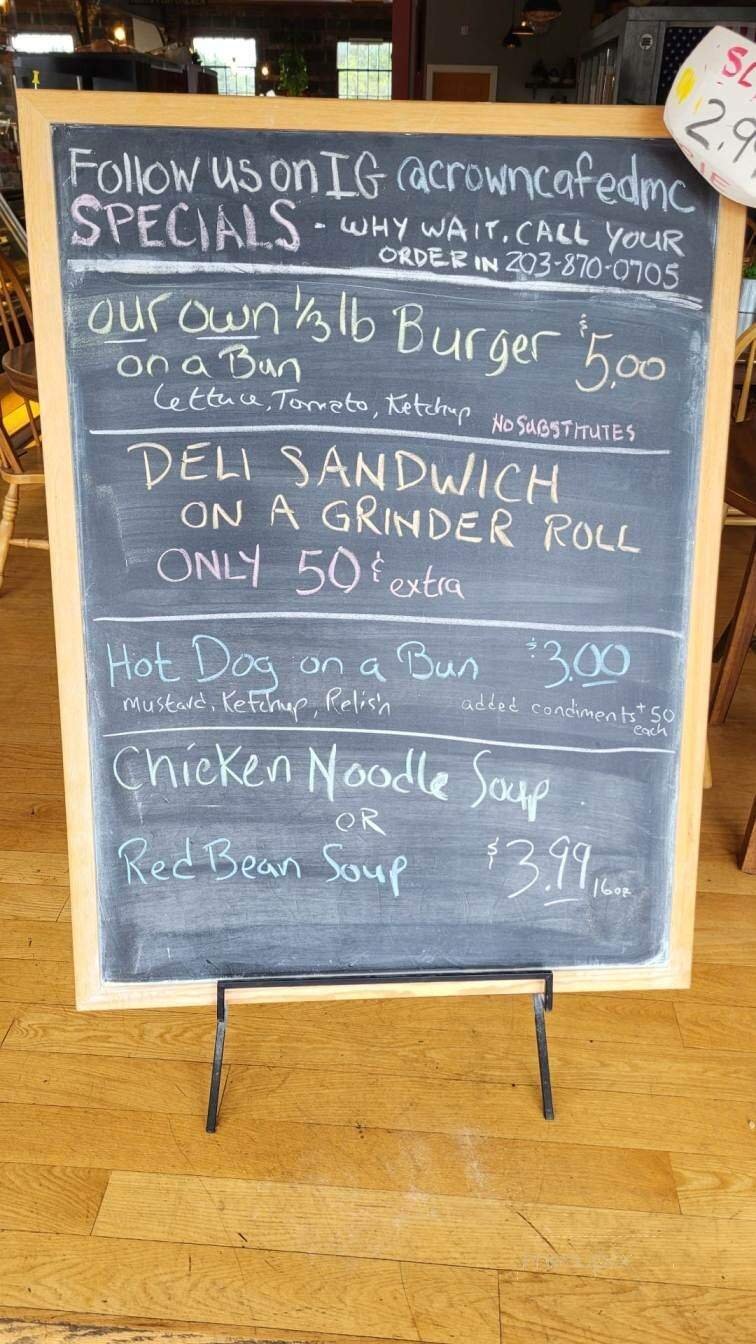 Follow us on IG @crowncafedmc
SPECIALS - WHY WAIT. CALL YOUR
ORDER IN 203-870-0705
our own 1/3 lb Burger $5.00
on a Bun
Lettuce, Tomato, Ketchup
NO SUBSTITUTES
DELI SANDWICH
ON A GRINDER ROLL
ONLY 50¢ extra
Hot Dog on a Bun $3.00
Mustard, Ketchup, Relish
added condiments + 50
each
Chicken Noodle Soup
OR
Red Bean Soup $3.99 16oz